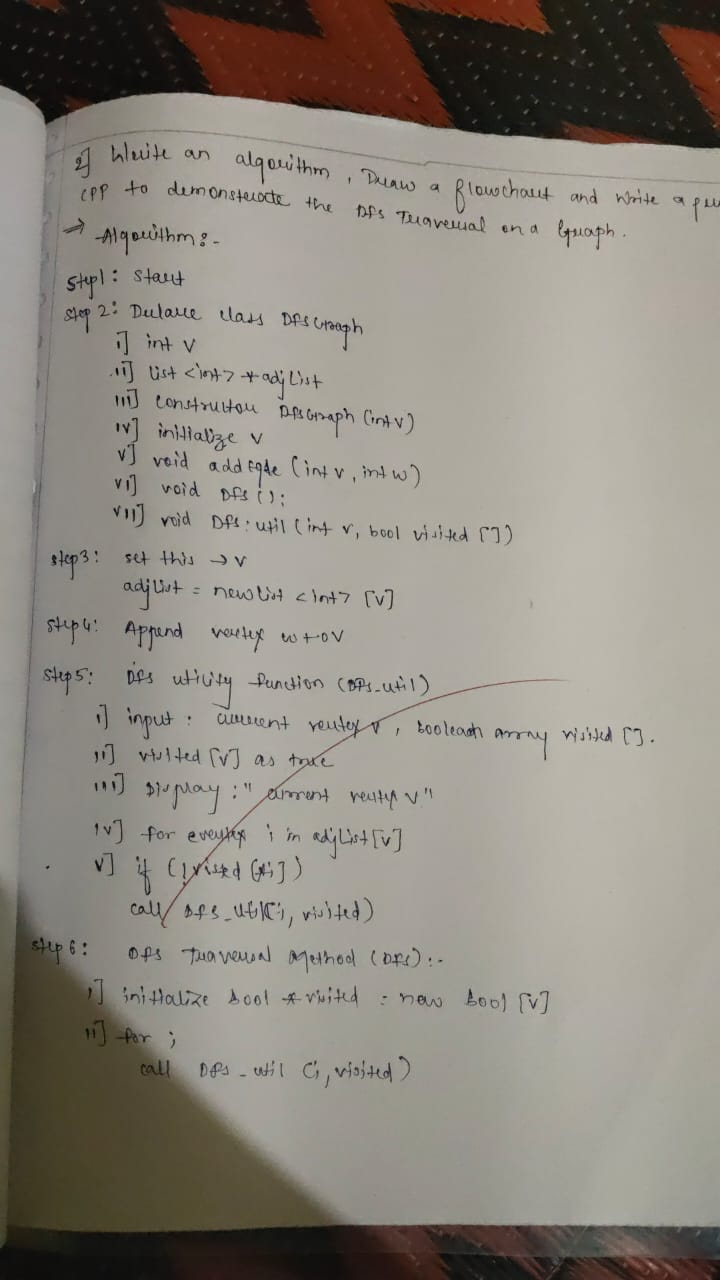 2] Write an algorithm, Draw a flowchart and write a
CPP to demonstrate the DFS Traversal on a Graph.
⇒ Algorithm:-
Step1: Start
Step 2: Declare class DFSGraph
i] int V
ii] list <int> * adjList
iii] constructor DFSGraph (int v)
iv] initialize v
v] void addEgde (int v, int w)
vi] void DFS ();
vii] void DFS:util (int v, bool visited [])
step3: set this → v
adjlist = new list <int> [v]
step4: Append vertex w to V
step5: DFS utility function (DFS_util)
i] input: current vertex v, boolean array visited [].
ii] visited [v] as true
iii] Display: "current vertex v"
iv] for i in adjList[v]
v] if (! [*i])
call DFS_util(i, visited)
step 6: DFS Traversal Method (DFS):-
i] initialize bool * visited = new bool [v]
ii] for ;
call DFS_util (i, visited)